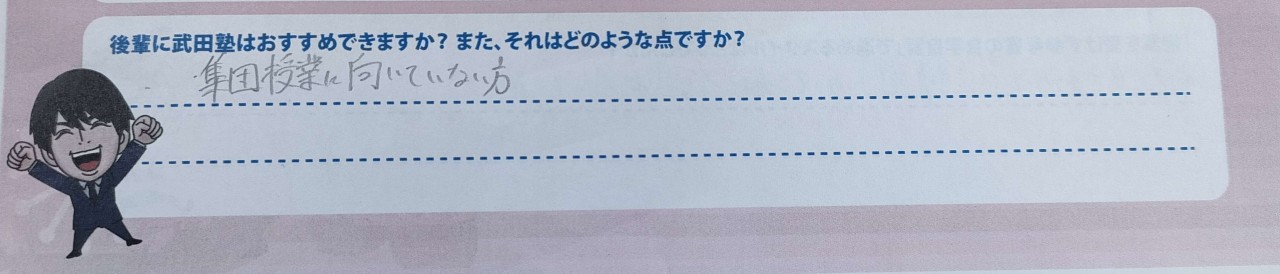 後輩に武田塾はおすすめできますか？また、それはどのような点ですか？
・集団授業に向いていない方